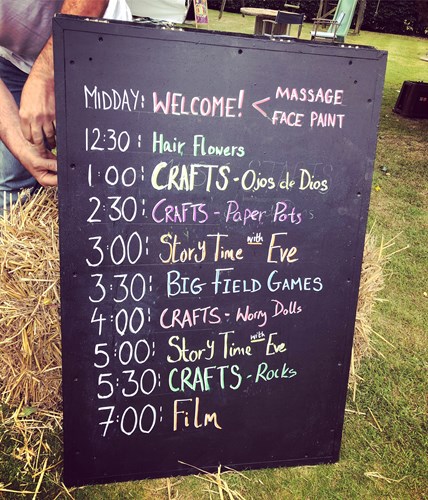 MIDDAY: WELCOME! < MASSAGE
FACE PAINT
12:30: Hair Flowers
1:00: CRAFTS - Ojos de Dios
2:30: CRAFTS - Paper Pots
3:00: Story Time with Eve
3:30: BIG FIELD GAMES
4:00: CRAFTS - Worry Dolls
5:00: Story Time with Eve
5:30: CRAFTS - Rocks
7:00: Film